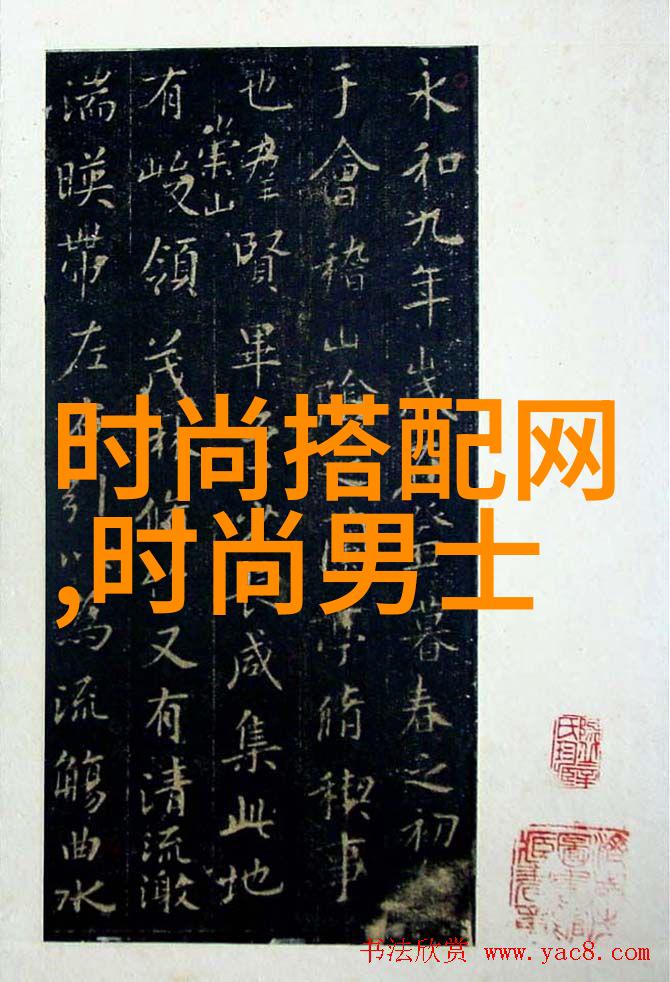 永和九年歲暮春之初
于會稽山陰亭脩稧事
也羣賢畢咸集此地
有崇山峻領茂林脩又有清流激
湍暎帶左右引以為流觴曲水
时尚搭配网
,时尚男士
书法欣赏 www.yac8.com